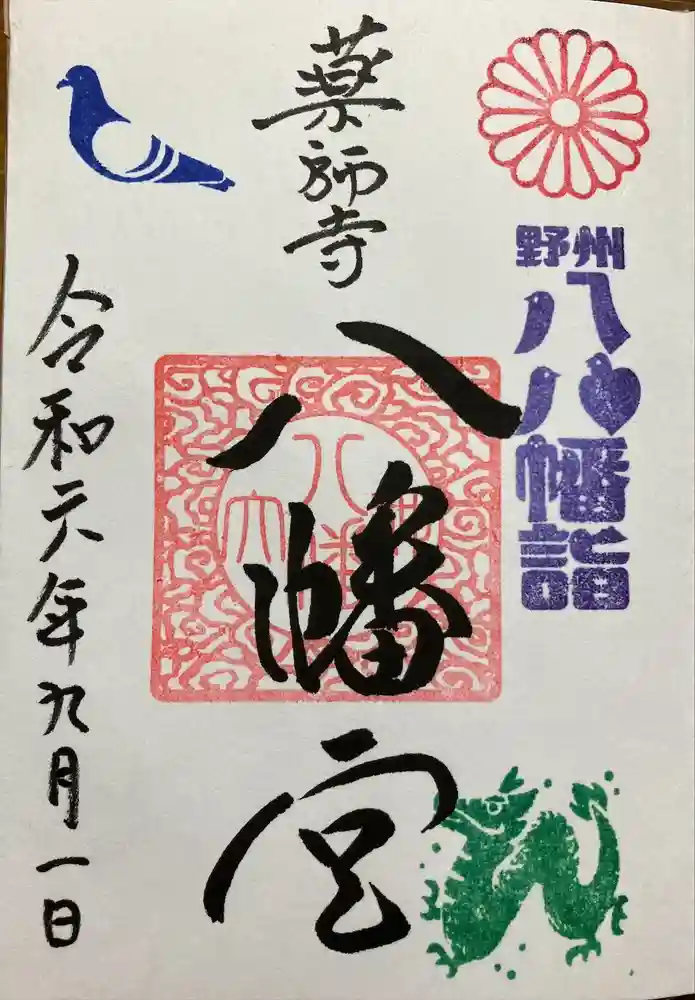 野州
八八幡詣
薬師寺
八幡宮
令和六年九月一日